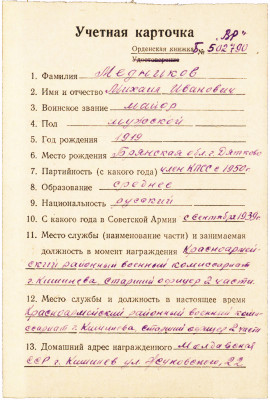 Учетная карточка „ВР"
Орденская книжка Б № 502790
Удостоверение
1. Фамилия Медников
2. Имя и отчество Михаил Иванович
3. Воинское звание майор
4. Пол мужской
5. Год рождения 1919
6. Место рождения Брянская обл. г. Дятьково
7. Партийность (с какого года) член КПСС с 1950 г.
8. Образование среднее
9. Национальность русский
10. С какого года в Советской Армии с сентября 1939 г.
11. Место службы (наименование части) и занимаемая
должность в момент награждения Красноармей-
ский районный военный комиссариат
г. Кишинева, старший офицер 2 части.
12. Место службы и должность в настоящее время
Красноармейский районный военный коми-
ссариат г. Кишинева, старший офицер 2 части
13. Домашний адрес награжденного Молдавская
ССР г. Кишинев ул. 22